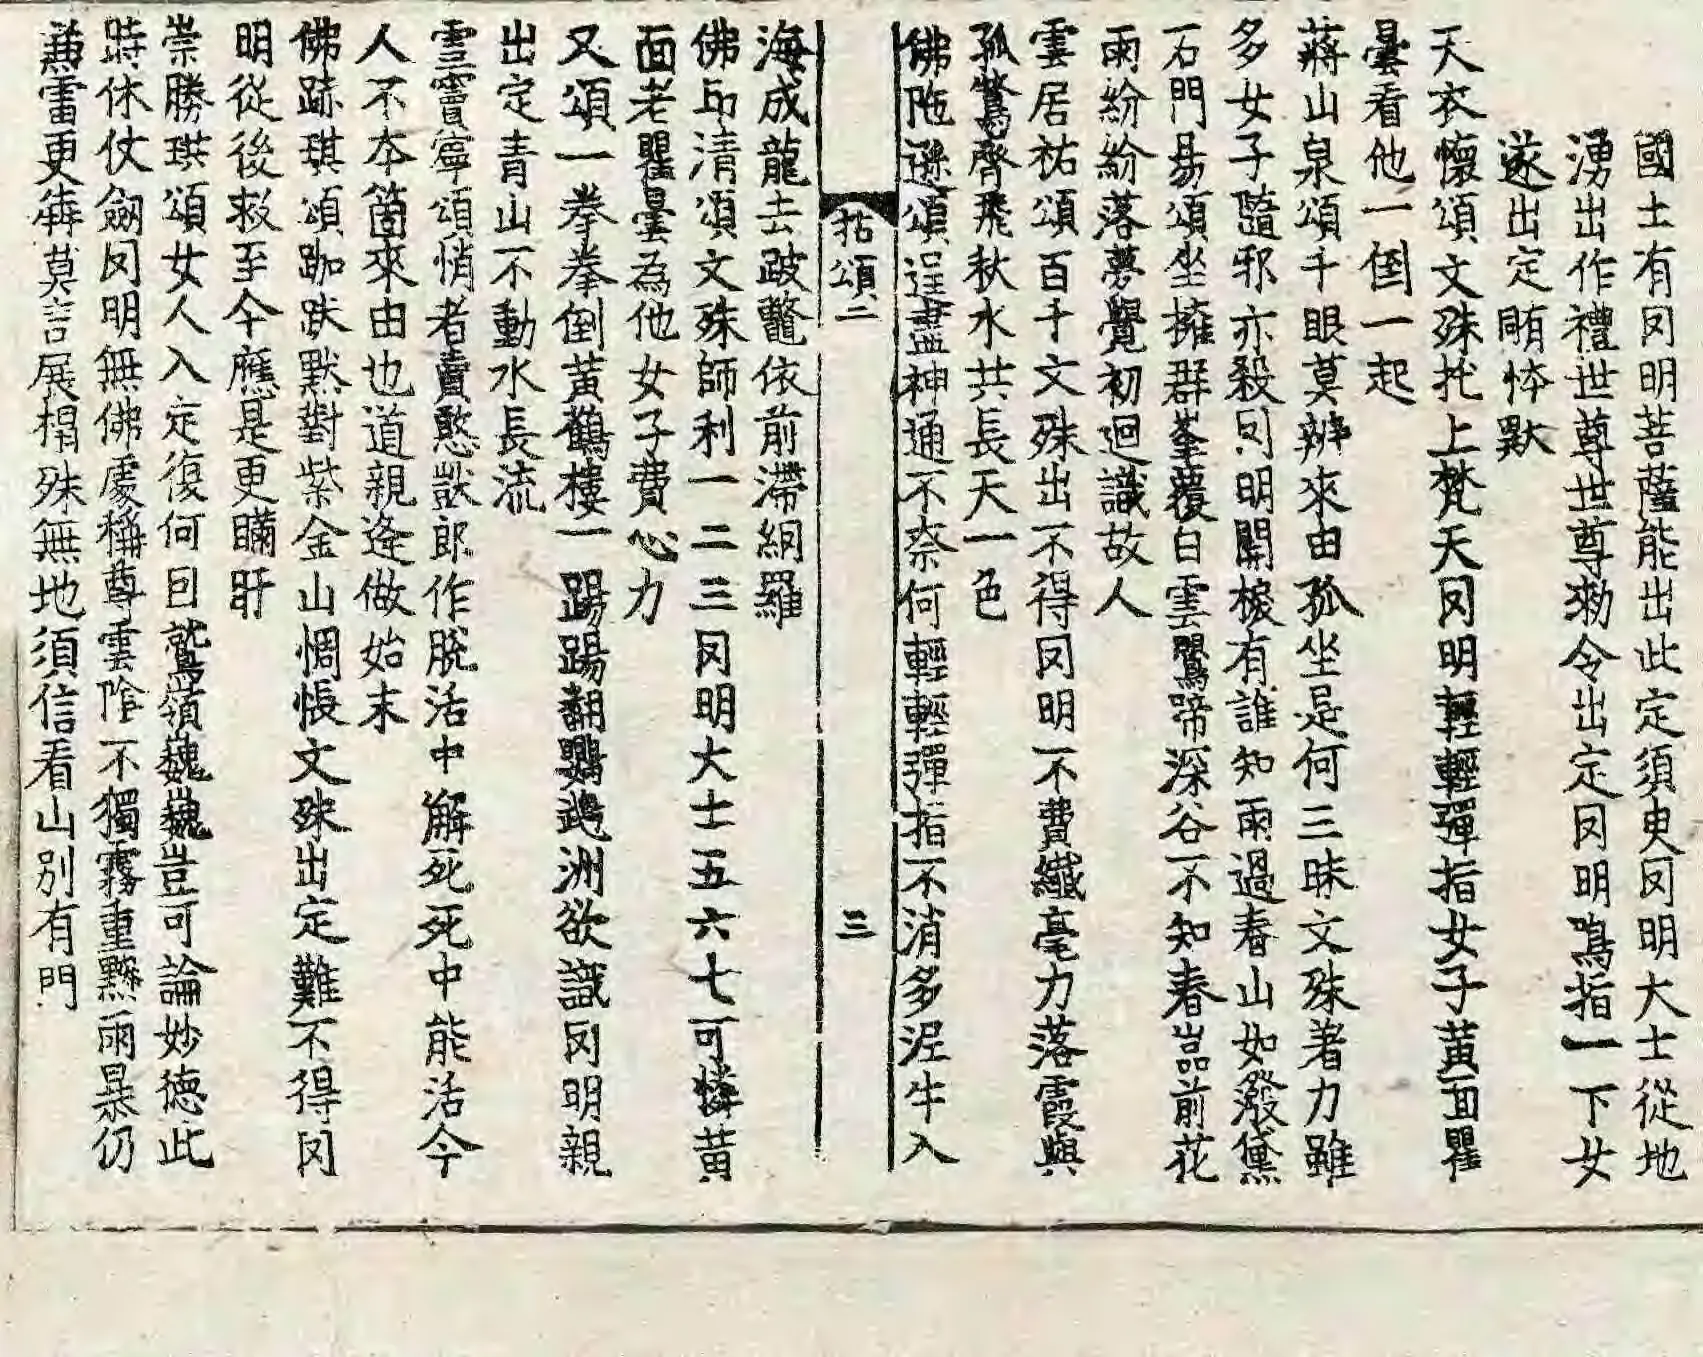 國土有罔明菩薩能出此定須臾罔明大士從地
湧出作禮世尊世尊勑令出定罔明鳴指一下女
遂出定師休默
天衣懷頌文殊托上梵天罔明輕輕彈指女子黃面瞿
曇看他一倒一起
蔣山泉頌千眼莫辨來由孤坐是何三昧文殊著力雖
多女子隨邪亦殺罔明關棙有誰知雨過春山如潑黛
石門易頌坐擁群峯覆白雲鸎啼深谷不知春嵓前花
雨紛紛落夢覺初迴識故人
雲居祐頌百千文殊出不得罔明不費纖毫力落霞與
孤鶩齊飛秋水共長天一色
佛陁遜頌逞盡神通不柰何輕輕彈指不消多泥牛入
拈頌二 三
海成龍去跛鼈依前滯網羅
佛印清頌文殊師利一二三罔明大士五六七可憐黃
面老瞿曇為他女子費心力
又頌一拳拳倒黃鶴樓一踢踢翻鸚鵡洲欲識罔明親
出定青山不動水長流
雲竇寧頌悄者賣憨獃郎作脫活中解死死中能活今
人不本箇來由也道親逢做始末
佛跡琪頌跏趺默對紫金山惆悵文殊出定難不得罔
明從後救至今應是更瞞盰
崇勝珙頌女人入定復何曰鷲嶺巍巍豈可論妙德此
時休仗劒罔明無佛處稱尊雲陰不獨霧重黲雨暴仍
兼雷更犇莫言展榻殊無地須信看山別有門